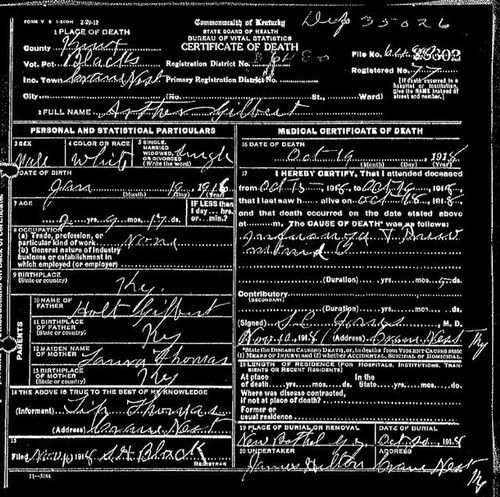 FORM V S 1-500M 2-29-12
Commonwealth of Kentucky
STATE BOARD OF HEALTH
BUREAU OF VITAL STATISTICS
CERTIFICATE OF DEATH
Dup 35026
1 PLACE OF DEATH
County Knox
Vot. Pct Blacks
Inc. Town Crane Nest
City (No. St., Ward)
Registration District No.
Primary Registration District No.
File No.
Registered No. 77
(If death occurred in a hospital or institution, give its NAME instead of street and number.)
2 FULL NAME Arthur Gilbert
PERSONAL AND STATISTICAL PARTICULARS
3 SEX Male
4 COLOR OR RACE White
5 SINGLE, MARRIED, WIDOWED, OR DIVORCED (Write the word) Single
6 DATE OF BIRTH
Jan 1916
(Month) (Day) (Year)
7 AGE
2 yrs. 9 mos. 17 ds.
IF LESS than 1 day... hrs. or... min.?
8 OCCUPATION
(a) Trade, profession, or particular kind of work None
(b) General nature of industry business or establishment in which employed (or employer)
9 BIRTHPLACE
(State or country) Ky.
PARENTS
10 NAME OF FATHER Holt Gilbert
11 BIRTHPLACE OF FATHER
(State or country) Ky
12 MAIDEN NAME OF MOTHER Laura Thomas
13 BIRTHPLACE OF MOTHER
(State or country) Ky
14 THE ABOVE IS TRUE TO THE BEST OF MY KNOWLEDGE
(Informant) Thomas
(Address) Crane Nest
15
Filed Nov 10 1918 S H Black
REGISTRAR
11-3184
MEDICAL CERTIFICATE OF DEATH
16 DATE OF DEATH
Oct 19 1918
(Month) (Day) (Year)
17 I HEREBY CERTIFY, That I attended deceased
from Oct 15 1918, to Oct 19, 1918,
that I last saw h alive on Oct 18 1918,
and that death occurred on the date stated above
at m. The CAUSE OF DEATH was as follows:
Influenza
(Duration) yrs. mos. ds.
Contributory
(SECONDARY)
(Duration) yrs. mos. ds.
(Signed) M. D.
Nov 10, 1918 (Address) Crane Nest Ky
*NOTE: DISEASE CAUSING DEATH, OR IN DEATHS FROM VIOLENT CAUSES state (1) MEANS OF INJURY; AND (2) WHETHER ACCIDENTAL, SUICIDAL OR HOMICIDAL.
18 LENGTH OF RESIDENCE (FOR HOSPITALS, INSTITUTIONS, TRANSIENTS OR RECENT RESIDENTS)
At place of death yrs. mos. ds. In the State yrs. mos. ds.
Where was disease contracted, if not at place of death?
Former or usual residence
19 PLACE OF BURIAL OR REMOVAL
New Bethel
DATE OF BURIAL
Oct 20 1918
20 UNDERTAKER
James Helton
ADDRESS
Crane Nest Ky